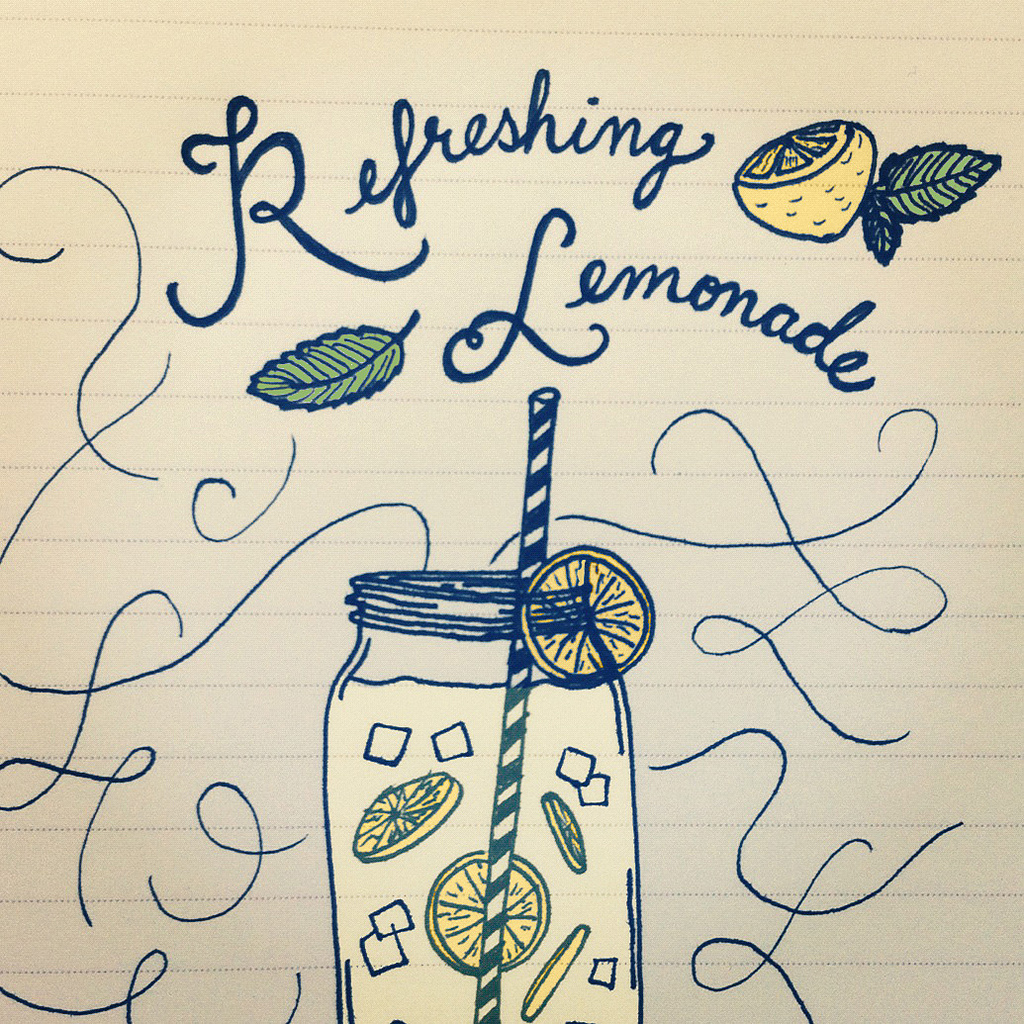 Refreshing
Lemonade